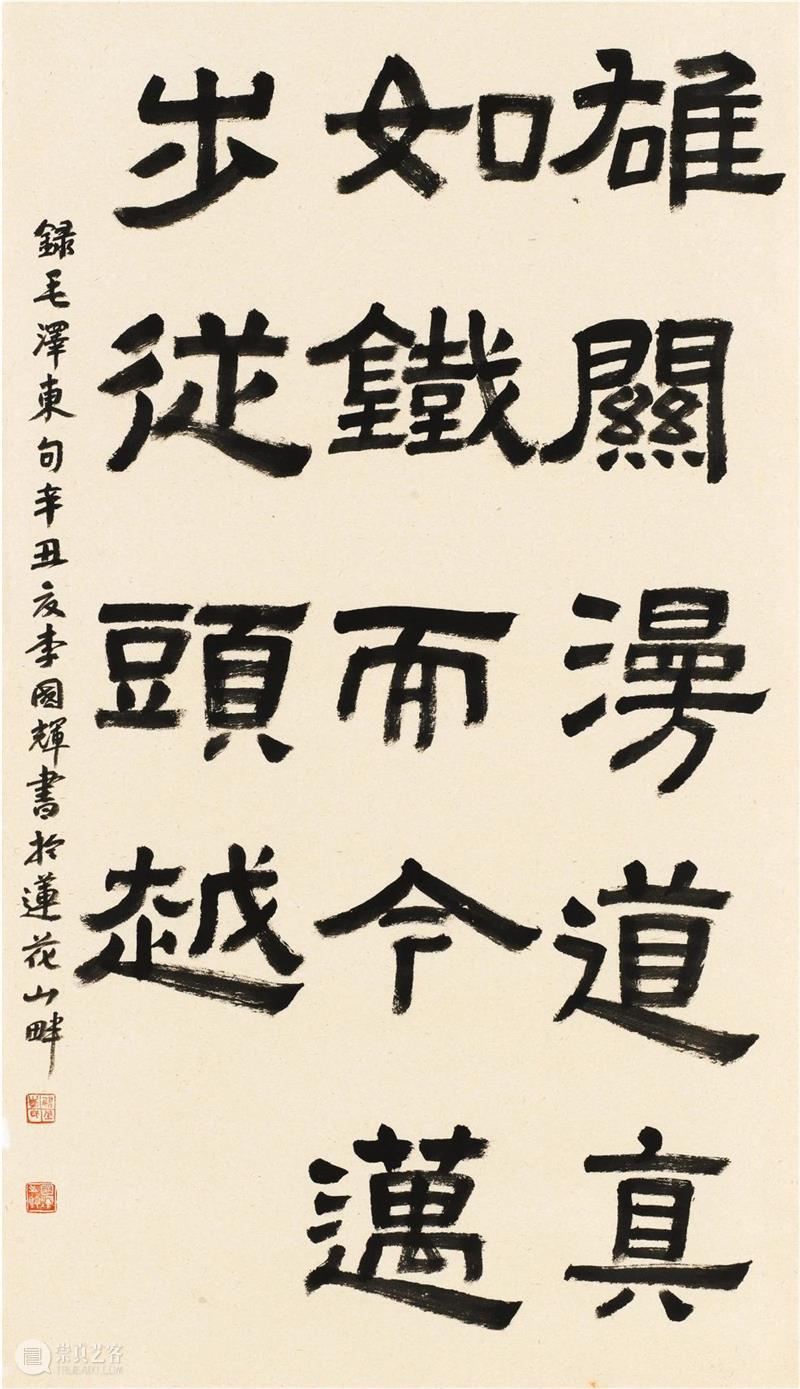 雄關漫道真
如鐵而今邁
步從頭越
録毛澤東句辛丑夏李國輝書於蓮花山畔
崇真艺客
TRUEART.COM